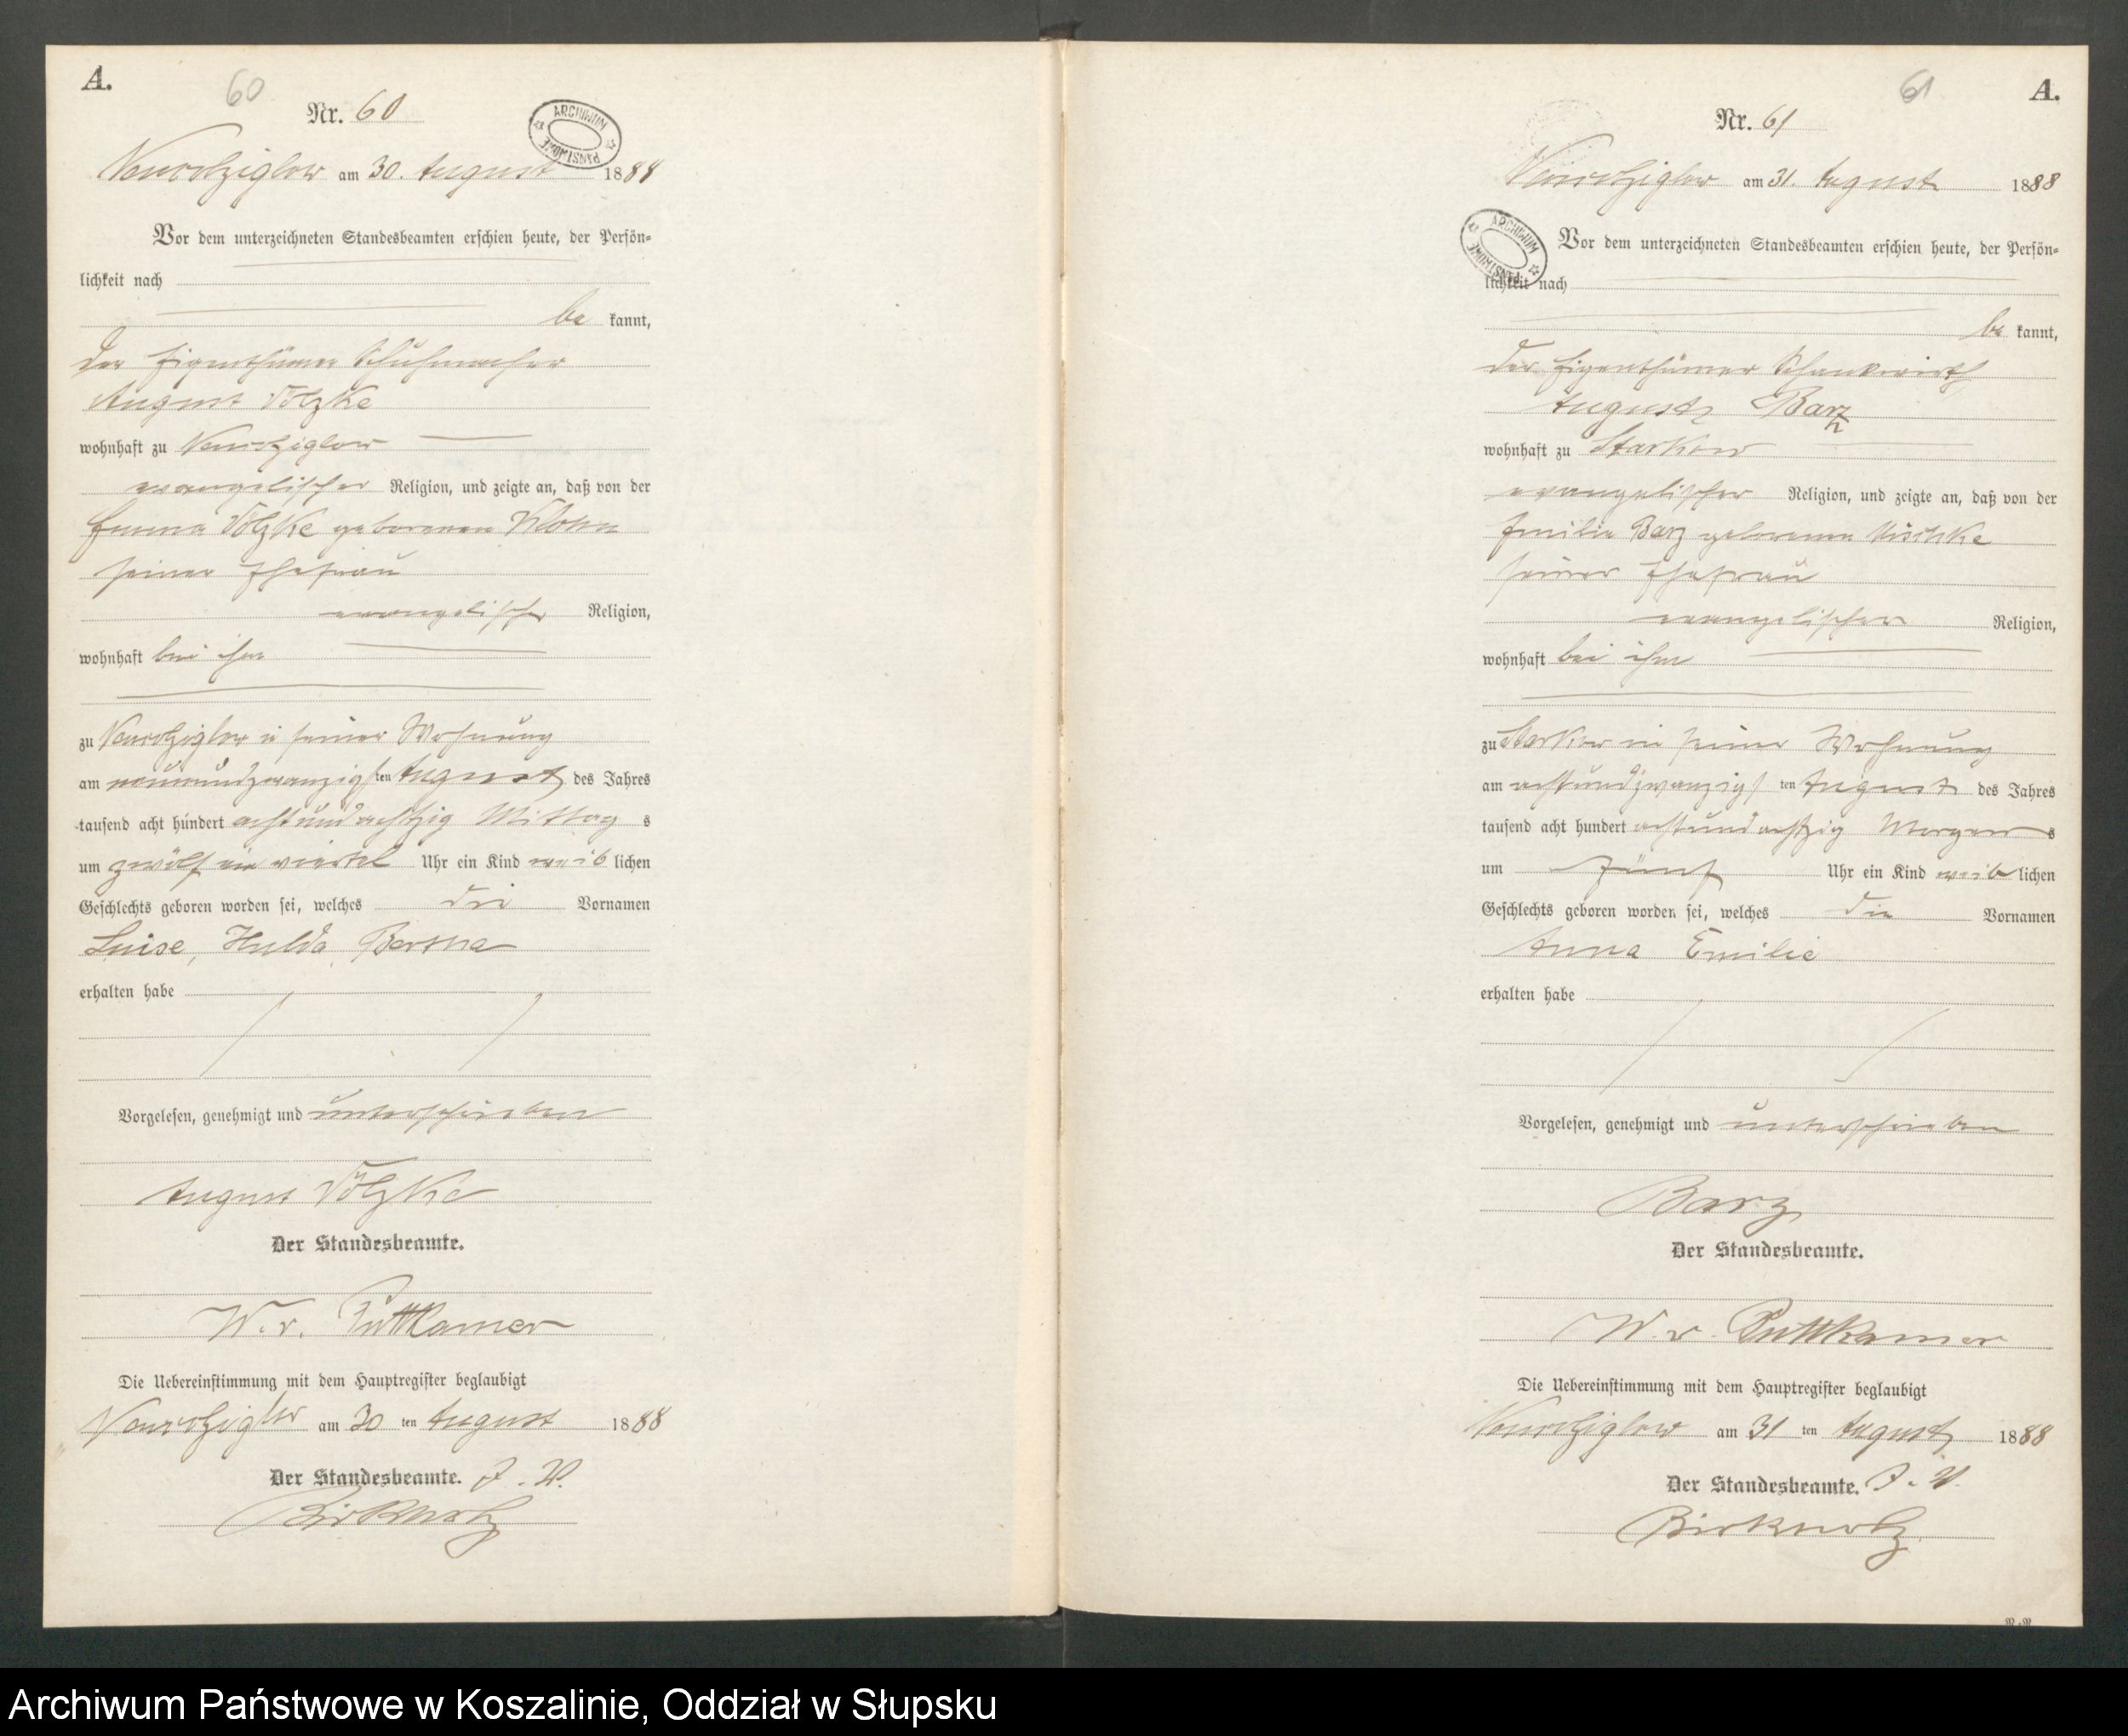 A.
60
Nr. 60
ARCHIWUM PAŃSTWOWE
am 30. August 1888
Vor dem unterzeichneten Standesbeamten erschien heute, der Persön-
lichkeit nach
be kannt,
der Eigenthümer Schuhmacher
August Völzke
wohnhaft zu
evangelischer Religion, und zeigte an, daß von der
Emma Völzke geborenen
seiner Ehefrau
evangelischer Religion,
wohnhaft bei ihm
zu in seiner Wohnung
am neunundzwanzigsten August des Jahres
tausend acht hundert achtundachtzig Mittags
um zwölf ein viertel Uhr ein Kind weiblichen
Geschlechts geboren worden sei, welches die Vornamen
Luise, Hulda, Bertha
erhalten habe
Vorgelesen, genehmigt und unterschrieben
August Völzke
Der Standesbeamte.
W. v. Puttkamer
Die Uebereinstimmung mit dem Hauptregister beglaubigt
am 30 ten August 1888
Der Standesbeamte. J. V.
Birkholz
61
A.
Nr. 61
am 31. August 1888
ARCHIWUM PAŃSTWOWE
Vor dem unterzeichneten Standesbeamten erschien heute, der Persön-
lichkeit nach
be kannt,
der Eigenthümer Schankwirth
August Barz
wohnhaft zu Starkow
evangelischer Religion, und zeigte an, daß von der
Emilie Barz geborenen
seiner Ehefrau
evangelischer Religion,
wohnhaft bei ihm
zu Starkow in seiner Wohnung
am achtundzwanzigsten August des Jahres
tausend acht hundert achtundachtzig Morgens
um fünf Uhr ein Kind weiblichen
Geschlechts geboren worden sei, welches die Vornamen
Anna Emilie
erhalten habe
Vorgelesen, genehmigt und unterschrieben
Barz
Der Standesbeamte.
W. v. Puttkamer
Die Uebereinstimmung mit dem Hauptregister beglaubigt
am 31 ten August 1888
Der Standesbeamte. J. V.
Birkholz
Archiwum Państwowe w Koszalinie, Oddział w Słupsku